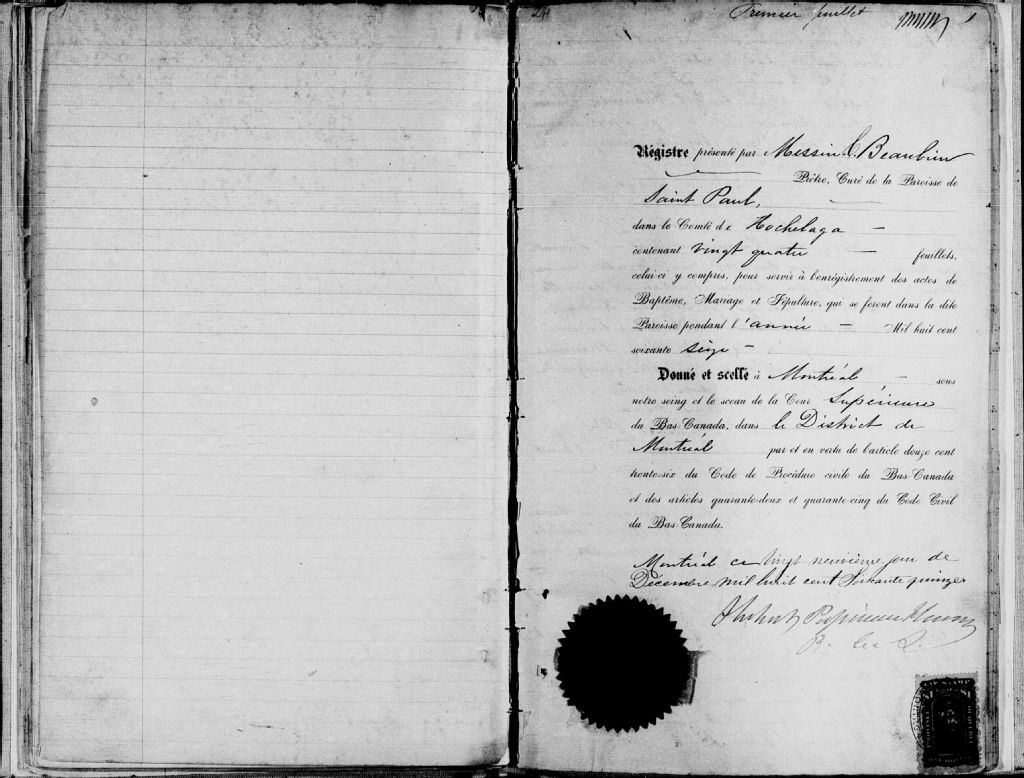 Premier feuillet
Régistre présenté par Messire C. Beaubien
Prêtre, Curé de la Paroisse de
Saint Paul,
dans le Comté de Hochelaga —
contenant vingt quatre — feuillets,
celui-ci y compris, pour servir à l'enrégistrement des actes de
Baptême, Mariage et Sépulture, qui se feront dans la dite
Paroisse pendant l'année — Mil huit cent
soixante seize —
Donné et scellé à Montréal — sous
notre seing et le sceau de la Cour Supérieure
du Bas-Canada, dans le District de
Montréal par et en vertu de l'article douze cent
trente-six du Code de Procédure civile du Bas-Canada
et des articles quarante-deux et quarante-cinq du Code Civil
du Bas-Canada.
Montréal ce vingt neuvième jour de
Décembre mil huit cent soixante quinze
Papineau Honey